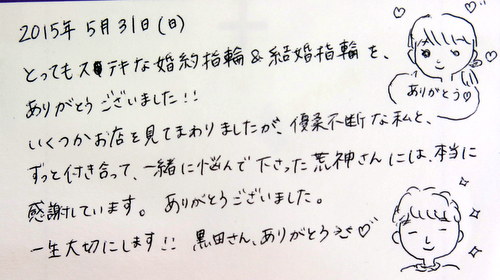 2015年 5月31日(日)
とってもステキな婚約指輪&結婚指輪を、
ありがとうございました!!
ありがとう♡
いくつかお店を見てまわりましたが、優柔不断な私と、
ずっと付き合って、一緒に悩んで下さった荒神さんには、本当に
感謝しています。 ありがとうございました。
一生大切にします!! 黒田さん、ありがとう